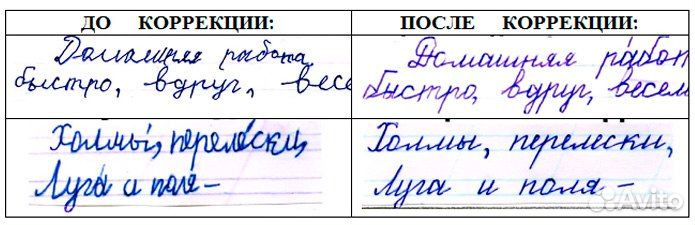 ДО КОРРЕКЦИИ:
ПОСЛЕ КОРРЕКЦИИ:
Домашняя работа.
быстро, вдруг, весе
Домашняя работ
быстро, вдруг, весел
Холмы, перелески,
Луга и поля –
Холмы, перелески,
Луга и поля –
Avito